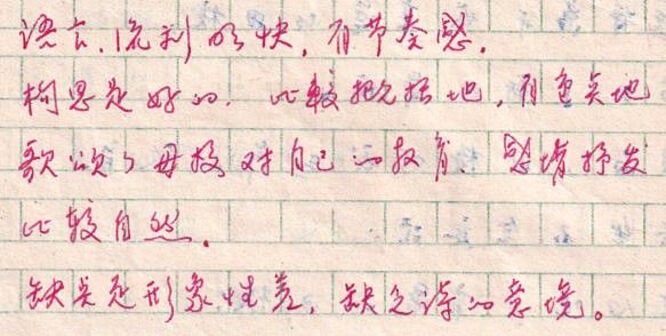 语言流利明快，有节奏感。
构思是好的．比较概括地，有重点地
歌颂了母校对自己的教育．感情抒发
比较自然．
缺点是形象性差，缺乏诗的意境。